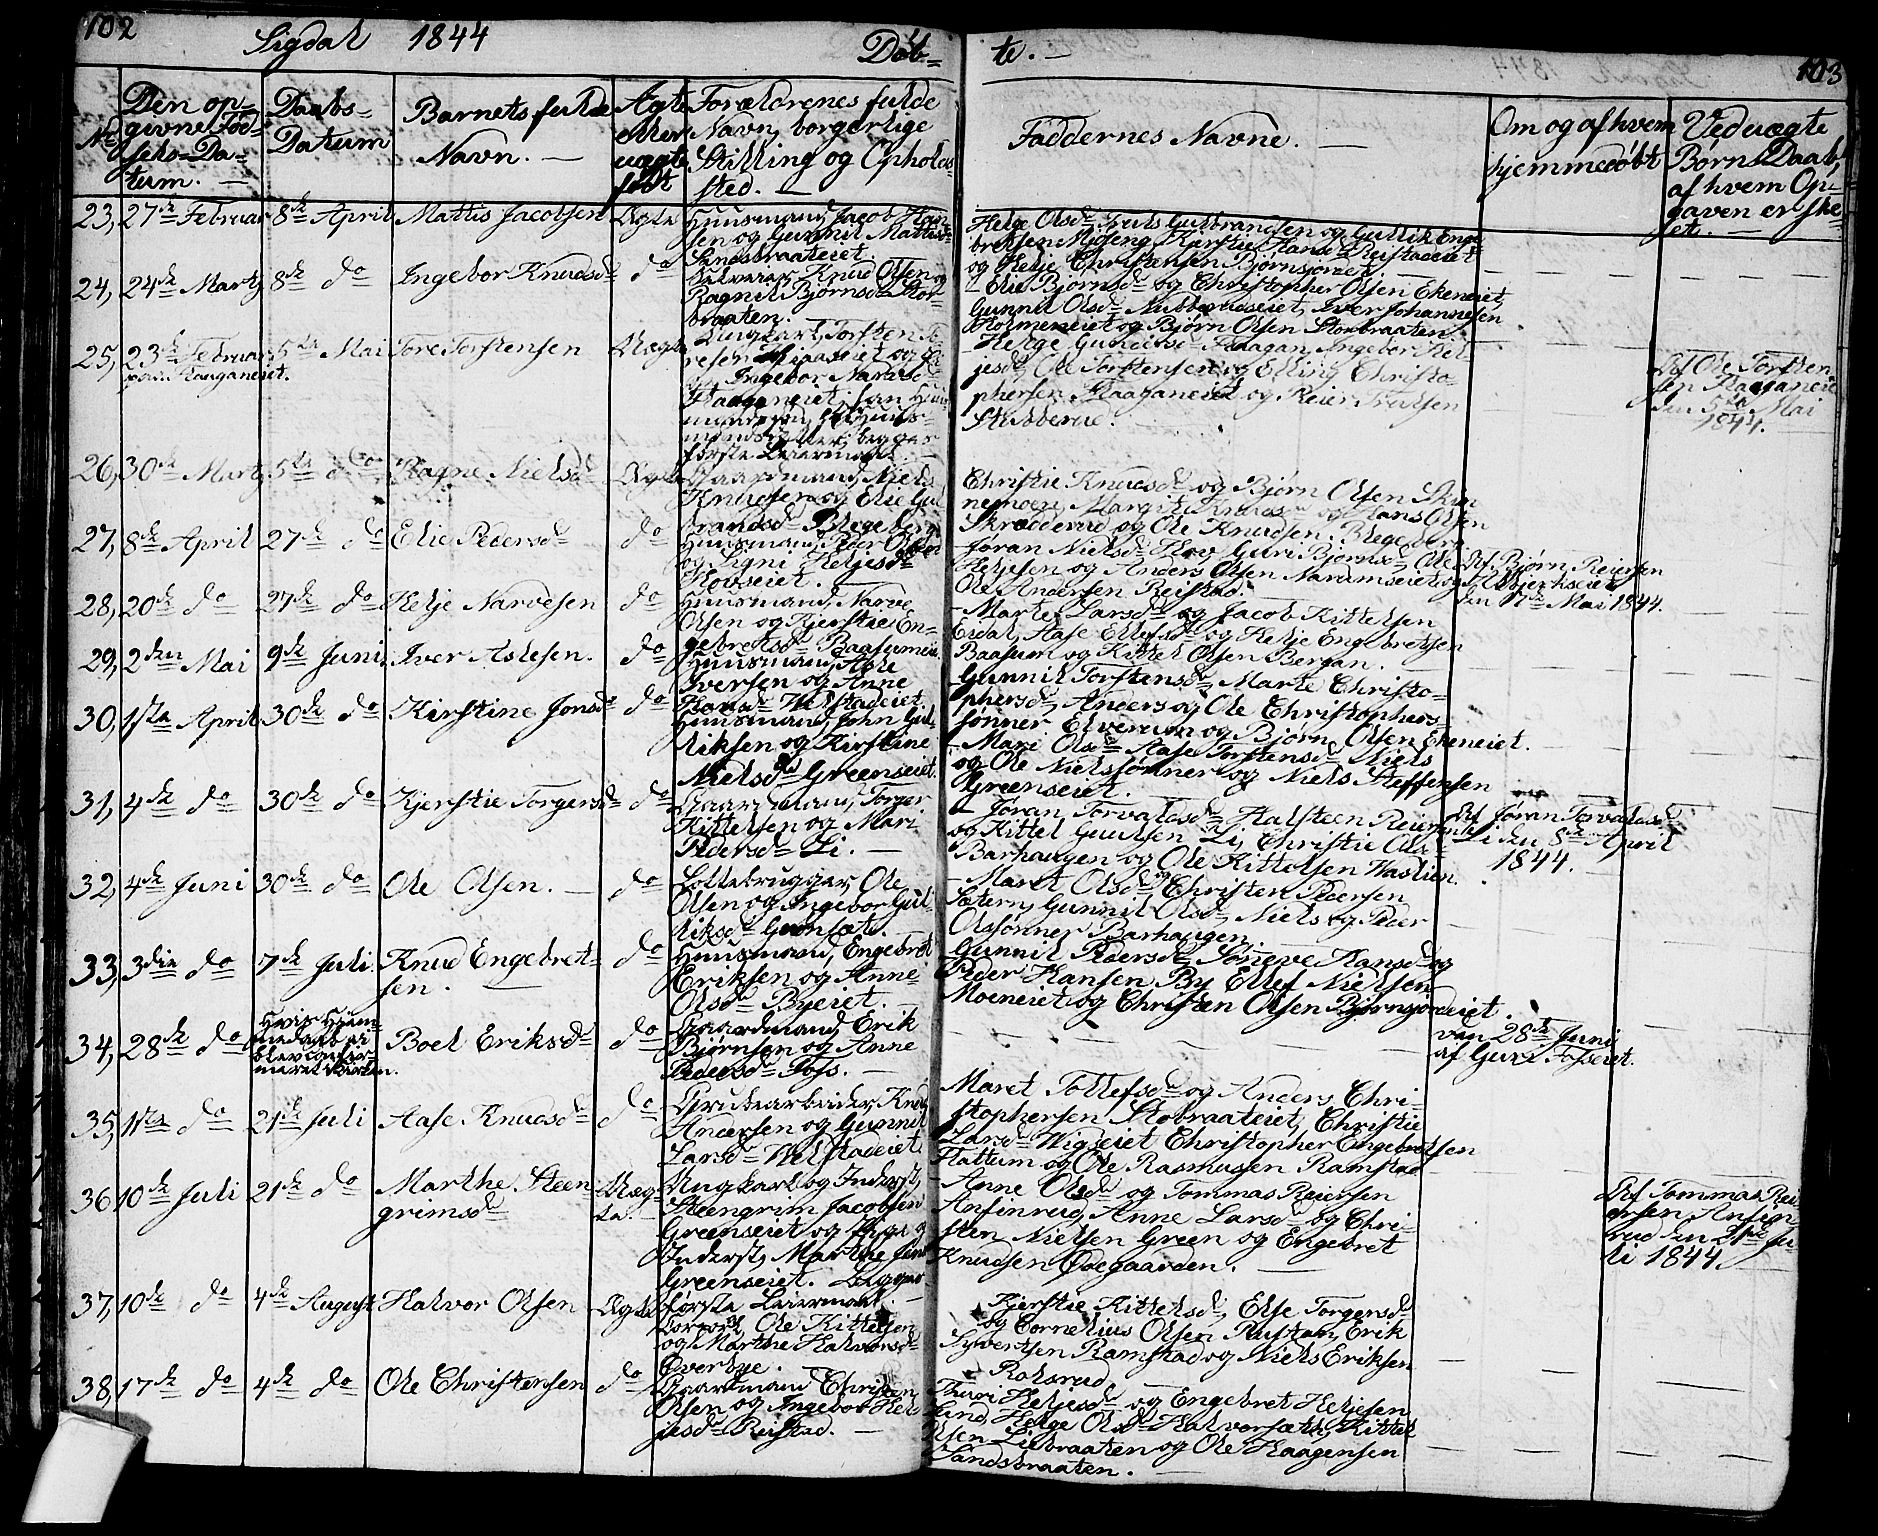 102
Sigdal 1844
Døb-
te. -
103
No
Den op-
givne Fød-
sels-Da-
tum. -
Daabs-
Datum
Barnets fulde
Navn. -
Ægte
eller
uægte
født
Forældrenes fulde
Navn, borgerlige
Stilling og Opholds-
sted. -
Faddernes Navne. -
Om og af hvem
hjemmedøbt
Ved uægte
Børns Daab,
af hvem Op-
gaven er ske-
et. -
23, 27de Februar 8de April Mattis Jacobsen Ægte
Huusmand, Jacob Han-
sen og Gunnil Mattisd
Sandsbraateiet.
Helge Olsd Truls Gulbrandsen og Gullik Enge
bretsen Mjøseng, Kjerstie Hansd Reistadeiet
og Helje Christensen Bjørnsjordet.
24, 24de Martz 8de do Ingebor Knudsd do
Selveier Knud Olsen og
Ragnil Bjørnsd Stor-
braaten. -
Elie Bjørnsd og Christopher Olsen Ekeneiet,
Gunnil Olsd Nubberudseiet, Iver Johannesen
Holmeneiet og Bjørn Olsen Storbraaten.
25, 23de Februar 5te Mai Tore Torstensen Uægte
paa Haaganeiet.
Ungkarl, Torsten To-
resen
Ingebor Narvesd
Haaganeiet, han Huus-
mandssøn, hun Huus-
mandsdatter, begges
første Leiermaal. -
Helge Gundersd Haagan, Ingebor Hel
jesd, Ole Torstensen og Elling Christo-
phersen Haaganeiet og Reier Trulsen
Stubberud.
Af Ole Torsten
sen Haaganeie
den 5te Mai
1844.
26, 30de Martz 5te do Ragne Nielsd Ægte
Gaardmand, Niels
Knudsen og Elie Gul
brandsd Blegeberg
Christie Knudsd og Bjørn Olsen Skin
nemoen, Margit Knudsd og Hans Olsen
Skrædderud og Ole Knudsen, Blegeberg
27, 8de April 27de do Elie Pedersd do
Huusmand, Peder Olsen
og Signi Heljesd
Hovseiet.
Jøran Nielsd Hov, Guri Bjørnsd, Ole
Heljesen og Anders Olsen Narumseiet og
Ole Andersen Reistad.
Af Bjørn Reiersen
den 17de Mai 1844.
28, 20de do 27de do Helje Narvesen do
Huusmand, Narve
Olsen og Kjerstie En-
gebretsd Baasumeiet
Marte Larsd og Jacob Kittelsen
Endal, Aase Ellefsd og Helje Engebretsen
Baasum og Kittel Olsen Bergan.
29, 2den Mai 9de Juni Iver Aslesen. do
Huusmand, Asle
Iversen og Anne
Gunnil Torstensd, Marte Christo-
phersd, Anders og Ole Christophers-
sønner Elverum og Bjørn Olsen Ekeneiet.
30, 1ste April 30de do Kirstine Jonsd do
Huusmand, John Gul
liksen og Kirstine
Nielsd Greenseiet
Mari Olsd Aase Torstensd Niels
og Ole Nielssønner og Niels Steffensen
Greenseiet.
31, 4de do 30de do Kjerstie Torgersd do
Gaardmand, Torger
Kittelsen og Mari
Pedersd Li. -
Jøran Torvaldsd Halsteen Reiersen
og Kittel Gundersen Li, Christie Olsd
Barhaugen og Ole Kittelsen Haslien.
Af Jøran Torvaldsd
Li den 8de April
1844.
32, 4de Juni 30de do Ole Olsen. - do
Ole
Olsen og Ingebor Gul-
liksd Grønsæt. -
Maret Olsd og Christen Pedersen
Sætern, Gunnil Olsd, Niels og Peder
Olssønner Barhaugen
33, 3die do 7de Juli. Knud Engebret-
sen. do
Huusmand, Engebret
Eriksen og Anne
Olsd Byeiet. -
Gunnil Pedersd Sønneve Hansd og
Peder Hansen By Ellef Nielsen
Moeneiet og Christen Olsen Bjørnsjordeiet.
34, 28de do
Hvis Hjem-
medaab ei
blev confir-
meret i Kirken.
Boel Eriksd do
Gaardmand, Erik
Bjørnsen og Anne
Pedersd Foss. -
den 28de Juni
af Guri Fosseiet.
35, 1ste do 21de Juli Aase Knudsd do
Brugsarbeider Knud
Andersen og Gunnil
Larsd Hilstadeiet
Maret Tollefsd og Anders Chri-
stophersen Stobraateiet, Christie
Larsd Wigeeiet Christopher Engebretsen
Flattum og Ole Rasmusen Ramstad
36 10de Juli 21de do Marthe Steen
grimsd Uæg-
te.
Ungkarl og Inderst,
Steengrim Jacobsen
Greenseiet og Pige og
Inderst, Marthe
Greenseiet. Begges
første Leiermaal.
Anne Olsd og Tommas Reiersen
Anfinrud, Anne Larsd og Chri-
sten Nielsen Green og Engebret
Knudsen Ødegaarden. -
Af Tommas Rei
ersen Anfin-
rud den 21de Ju-
li 1844
37, 10de do 4de August Halvor Olsen Ægte
Ole Kittelsen
og Marthe Halvorsd
Overbye. -
Kjerstie Kittelsd, Else Torgersd
og Cornelius Olsen Rustan, Erik
Syvertsen Ramstad og Niels Eriksen
Rolsrud.
38, 17de do 4de do Ole Christensen do
Gaardmand Christen
Olsen og Ingebor Hel-
jesd Reistad. -
Thuri Heljesd og Engebret Heljesen
Lund, Helge Olsd Halvorsæth, Kittel
Olsen Liebraaten og Ole Haagensen
Sandsbraaten.